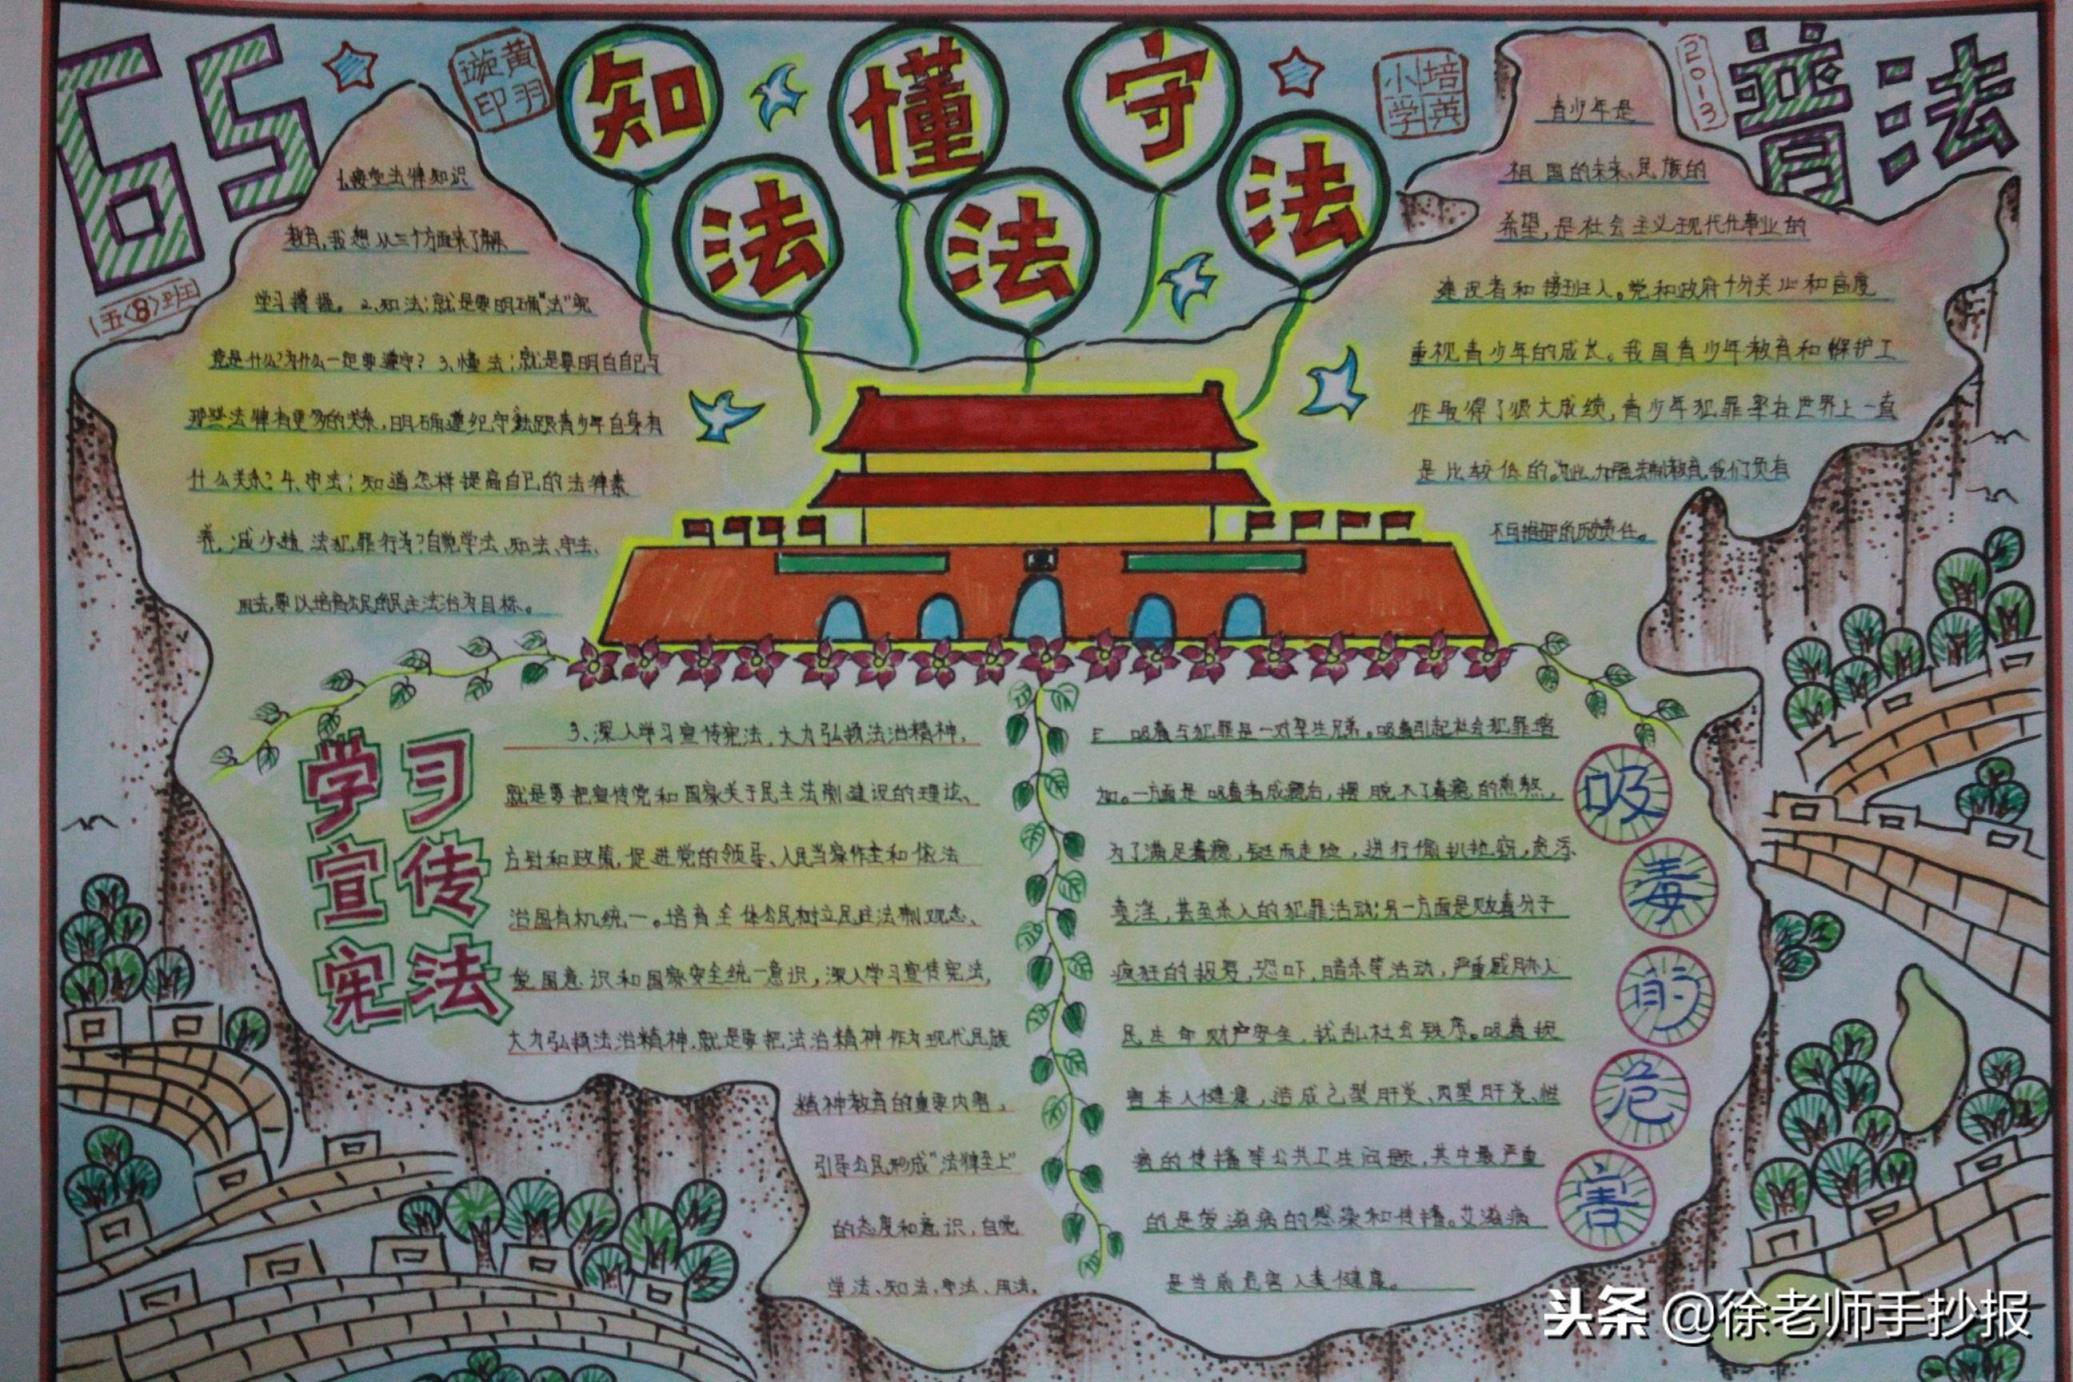 65
黄羽
璇印
知法
懂法
守法
培英
小学
2013
普法
五〈8〉班
1、接受法律知识
教育,我想从三个方面来了解
学习掌握。2、知法:就是要明确“法”究
竟是什么?为什么一定要遵守?3、懂法:就是要明白自己与
那些法律有更多的关系,明确遵纪守法跟青少年自身有
什么关系?4、守法:知道怎样提高自己的法律素
养,减少违法犯罪行为?自觉学法、知法、守法、
用法,要以培育公民的民主法治为目标。
青少年是
祖国的未来、民族的
希望,是社会主义现代化事业的
建设者和接班人。党和政府十分关心和高度
重视青少年的成长。我国青少年教育和保护工
作取得了很大成绩,青少年犯罪率在世界上一直
是比较低的。为此,加强法制教育,我们负有
不可推卸的历史责任。
学习
宣传
宪法
3、深入学习宣传宪法,大力弘扬法治精神,
就是要把宣传党和国家关于民主法制建设的理论、
方针和政策,促进党的领导、人民当家作主和依法
治国有机统一。培育全体公民树立民主法制观念、
爱国意识和国家安全统一意识,深入学习宣传宪法,
大力弘扬法治精神,就是要把法治精神作为现代民族
精神教育的重要内容,
引导公民形成“法律至上”
的态度和意识,自觉
学法、知法、守法、用法。
吸毒的危害
吸毒与犯罪是一对孪生兄弟。吸毒引起社会犯罪增
加。一方面是吸毒者成瘾后,摆脱不了毒瘾的煎熬,
为了满足毒瘾,铤而走险,进行偷扒抢窃,贪污、
卖淫,甚至杀人的犯罪活动;另一方面是贩毒分子
疯狂的报复,恐吓,暗杀等活动,严重威胁人
民生命财产安全,扰乱社会秩序。吸毒损
害本人健康,造成乙型肝炎、丙型肝炎、性
病的传播等公共卫生问题,其中最严重
的是爱滋病的感染和传播。艾滋病
是当前危害人类健康。
头条@徐老师手抄报